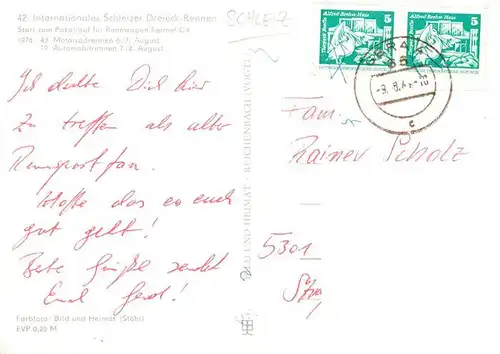 42. Internationales Schleizer Dreieck-Rennen
Start zum Pokallauf für Rennwagen Formel
1976 43. Motorradrennen 6./7. August
19. Automobilrennen 7./8. August
SCHLEIZ
Ich dachte Dich hier
zu treffen als alter
Rennsportfan.
Ich hoffe das es euch
gut geht!
Beste Grüße sendet
Euch Gerd!
Farbfoto: Bild und Heimat (Stöhr)
EVP 0,20 M
BILD UND HEIMAT · REICHENBACH (VOGTL)
Alfred Brehm Haus
Tierpark Berlin
5
Alfred Brehm Haus
5
GERA
65
c
Fam.
Rainer Scholz
5301
Str.